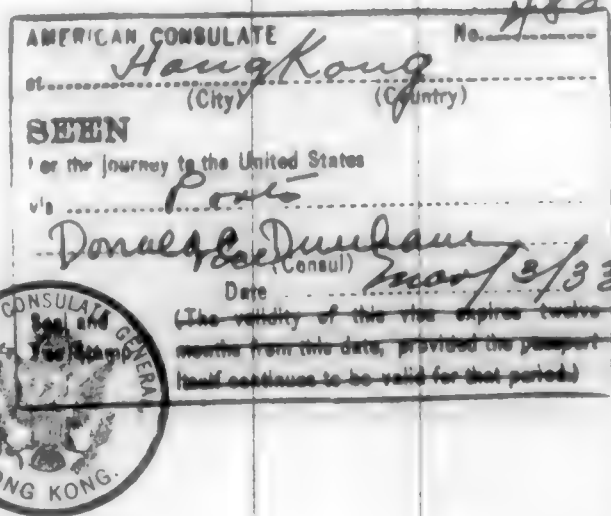 AMERICAN CONSULATE No.
at Hong Kong
(City) (Country)
SEEN
for the journey to the United States
via Ports
Donald Dunham
(Consul)
Date Mar/3/33
(The validity of this visa expires twelve
months from this date, provided the passport
itself continues to be valid for that period)
Seal and
Fee Stamp
CONSULATE GENERAL
HONG KONG.